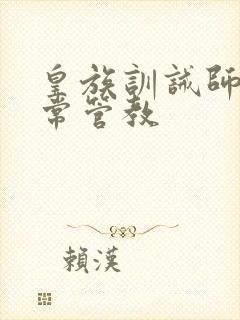 皇族訓誡師
常管教
賴漢